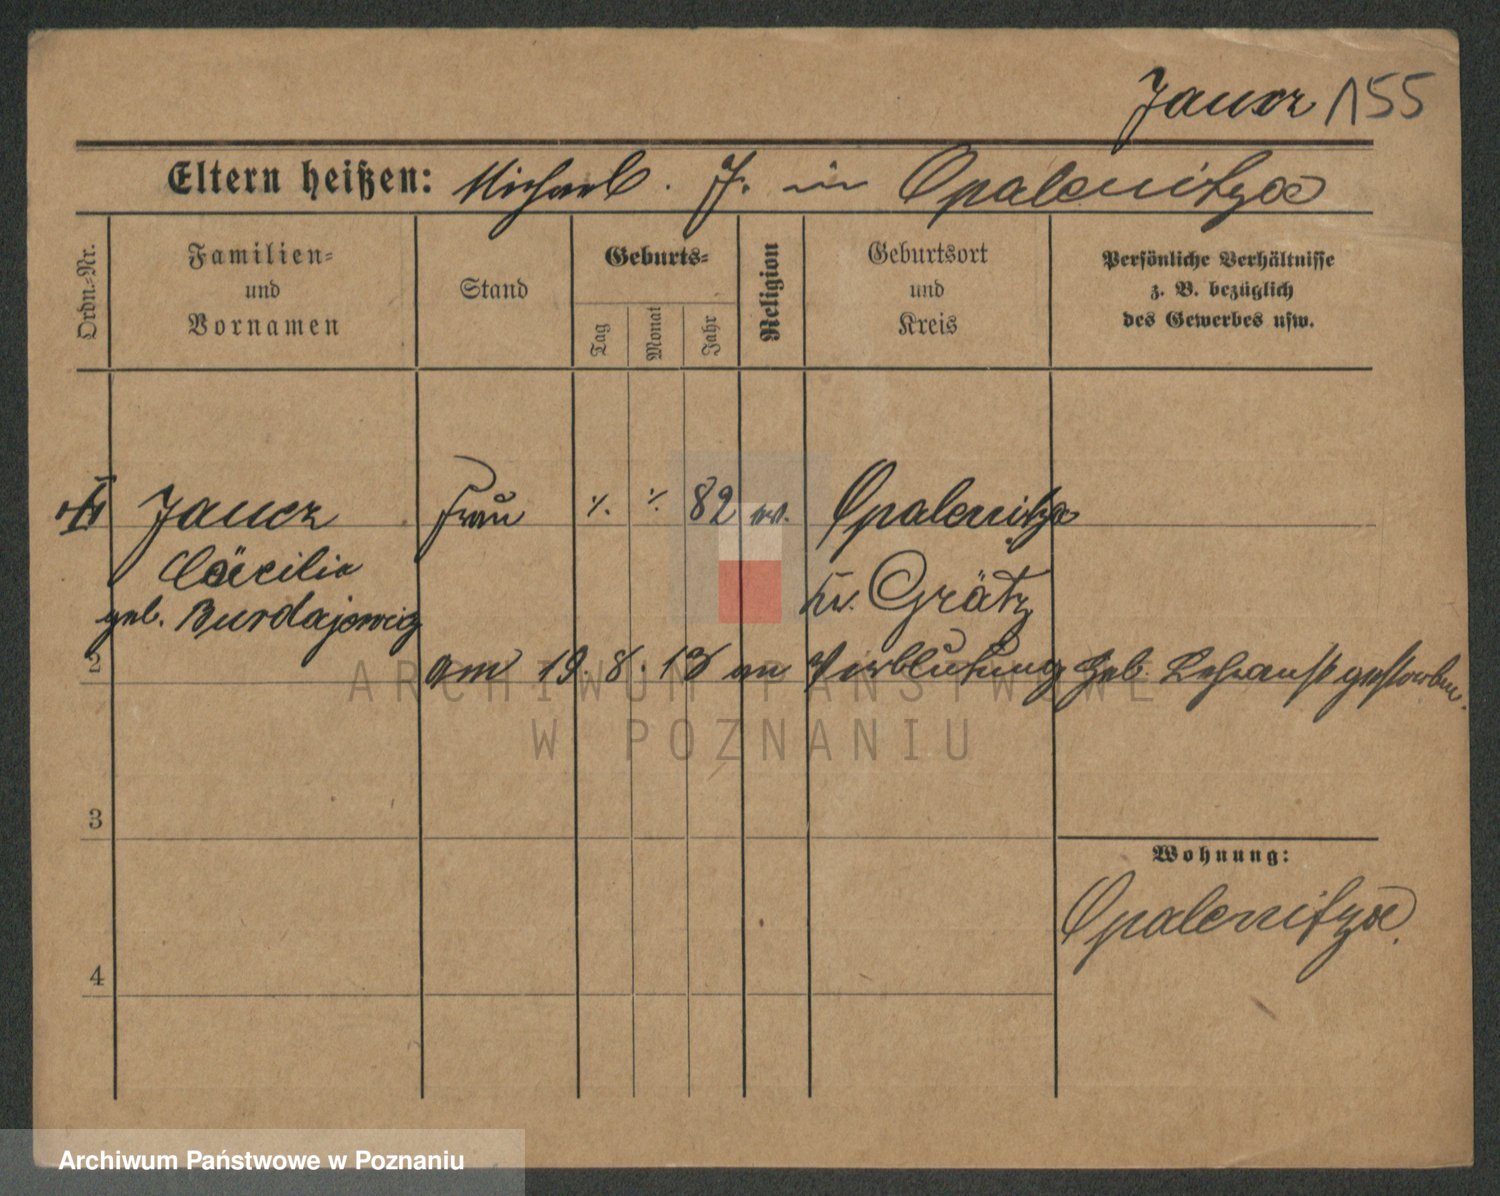 Jaucz 155
Eltern heißen: Michael. J. in Opalenitza
Ordn.-Nr.
Familien-
und
Vornamen
Stand
Geburts-
Tag
Monat
Jahr
Religion
Geburtsort
und
Kreis
Persönliche Verhältnisse
z. B. bezüglich
des Gewerbes usw.
Jaucz Frau ·/. ·/. 82 Opalenitza
Cäcilia
Kr. Grätz
geb. Burdajewicz
2
am 19. 8. 13 an Verblutung Heb. Lehranst gestorben.
3
4
Wohnung:
Opalenitza.
ARCHIWUM PAŃSTWOWE
W POZNANIU
Archiwum Państwowe w Poznaniu